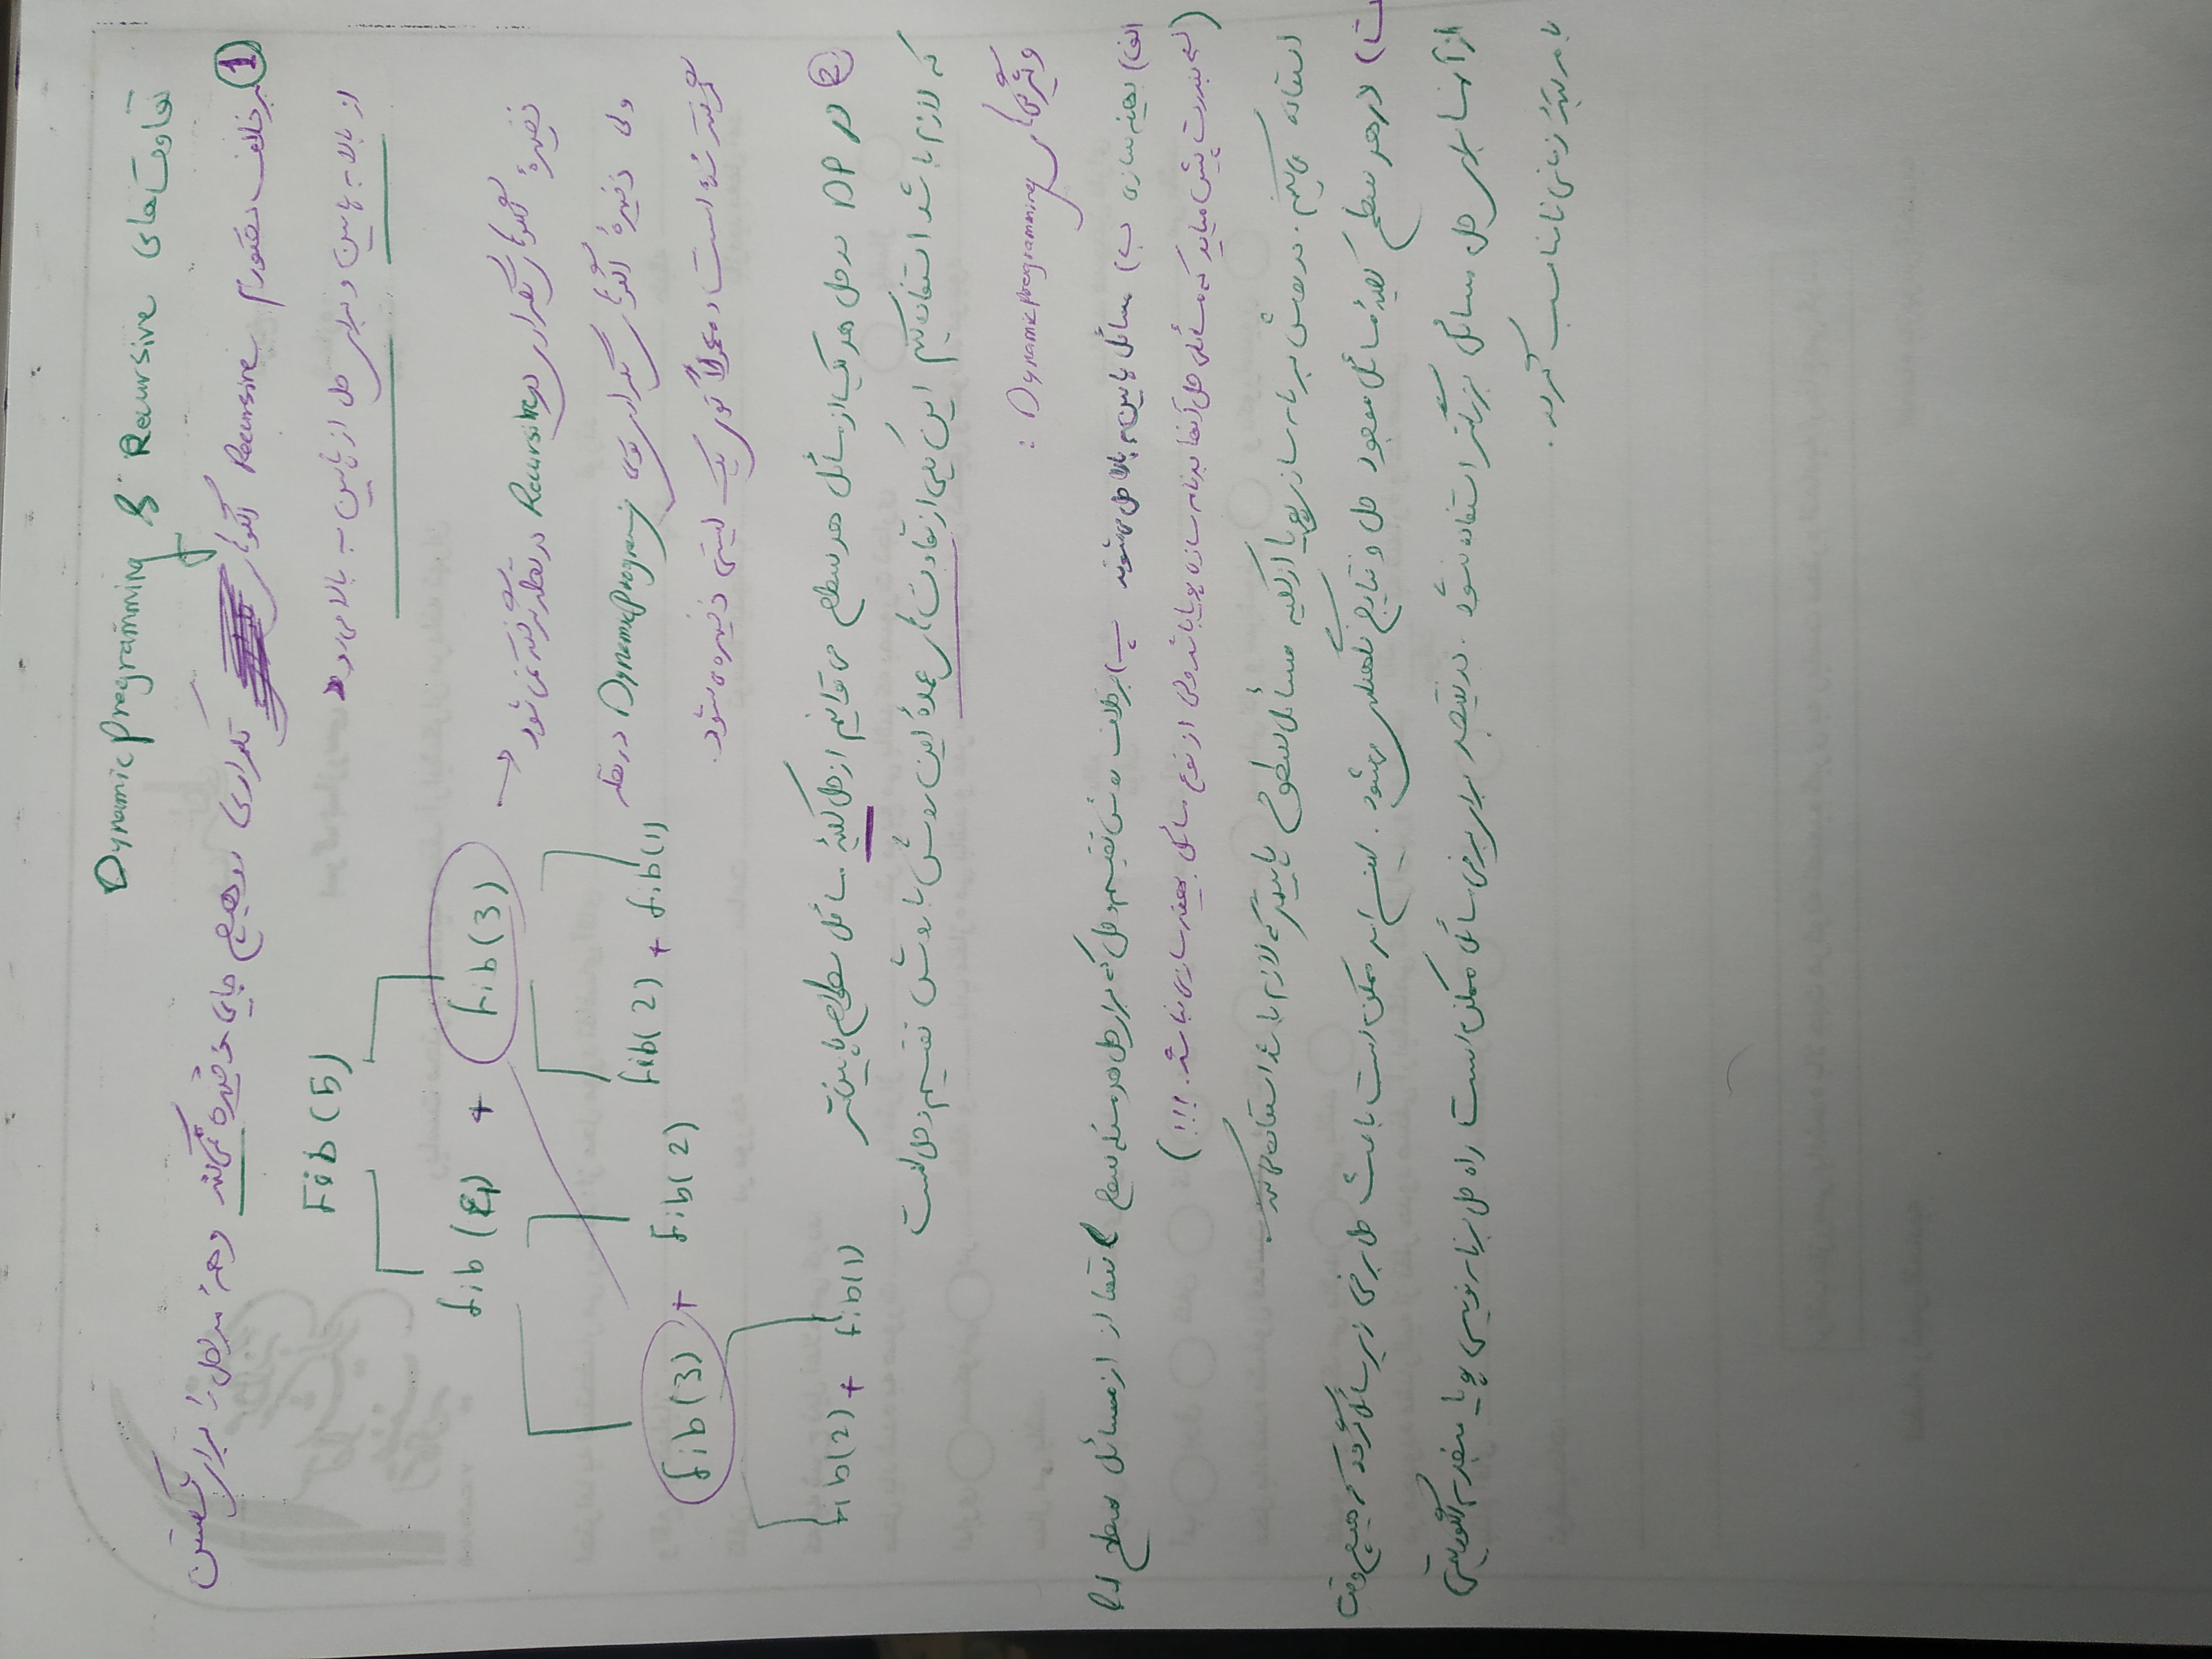 تفاوت‌های Recursive & Dynamic programming
① برخلاف تصورم Recursive الگوهای تکراری رو هیچ جایی ذخیره نمی‌کند و همهٔ مراحل را برای شکستن
از بالا به پایین و برای حل از پایین به بالا می‌رود
Fib (5)
fib (4) + fib(3)
ذخیرهٔ الگوهای تکراری در Recursive در نظر گرفته نمی‌شود
fib(3) + fib(2) fib(2) + fib(1)
ولی ذخیرهٔ الگوهای تکراری توی Dynamic programing در نظر
گرفته شده است و معمولاً توی یک لیستی ذخیره می‌شود.
fib(2) + fib(1)
② در DP در حل هر یک از مسائل هر سطح می‌توانیم از حل کلیهٔ مسائل سطوح پایین‌تر
که لازم باشد استفاده کنیم این یکی از تفاوت‌های عمدهٔ این روش با روش تقسیم و حل است
ویژگی‌های Dynamic programming :
الف) بهینه سازی ب) مسائل پایین به بالا حل می‌شوند پ) برخلاف روش تقسیم و حل که برای حل هر مسئله سطح l تنها از از مسائل سطح l-1
(بندرت پیش میاید که مسأله‌ای حل آنها برنامه سازی پویا باشد ولی از نوع مسائل بهینه سازی نباشد. !!!)
استفاده می‌کنیم. در روش برنامه سازی پویا از کلیه مسائل سطوح پایینتر که لازم باشد استفاده می‌کند.
ت) در هر سطح کلیهٔ مسائل موجود حل و نتایج نگهداری می‌شود. این امر ممکن است باعث حل برخی زیر مسائل گردد که هیچ وقت
از آنها برای حل مسائل بزرگتر استفاده نشود. در نتیجه برای برخی مسائل ممکن است راه حل برنامه نویسی پویا منجر به الگوریتمی
با مرتبهٔ زمانی نامناسب گردد.